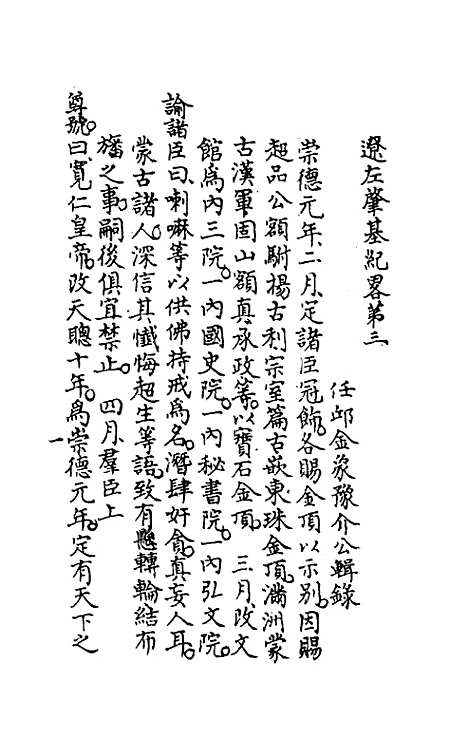 遼左肇基紀畧第三
任邱金象豫介公輯錄
崇德元年二月定諸臣冠飾。各賜金頂以示别。因賜
超品公額駙揚古利宗室篇古嵌東珠金頂。滿洲蒙
古漢軍固山額真承政等。以寶石金頂。 三月改文
館爲内三院。一内國史院。一内秘書院。一内弘文院。
諭諸臣曰。喇嘛等以供佛持戒爲名。潛肆奸貪。真妄人耳。
蒙古諸人。深信其懺悔超生等語。致有懸轉輪結布
旛之事。嗣後俱宜禁止。 四月羣臣上
尊號。曰寬仁皇帝。改天聰十年。爲崇德元年。定有天下之
一